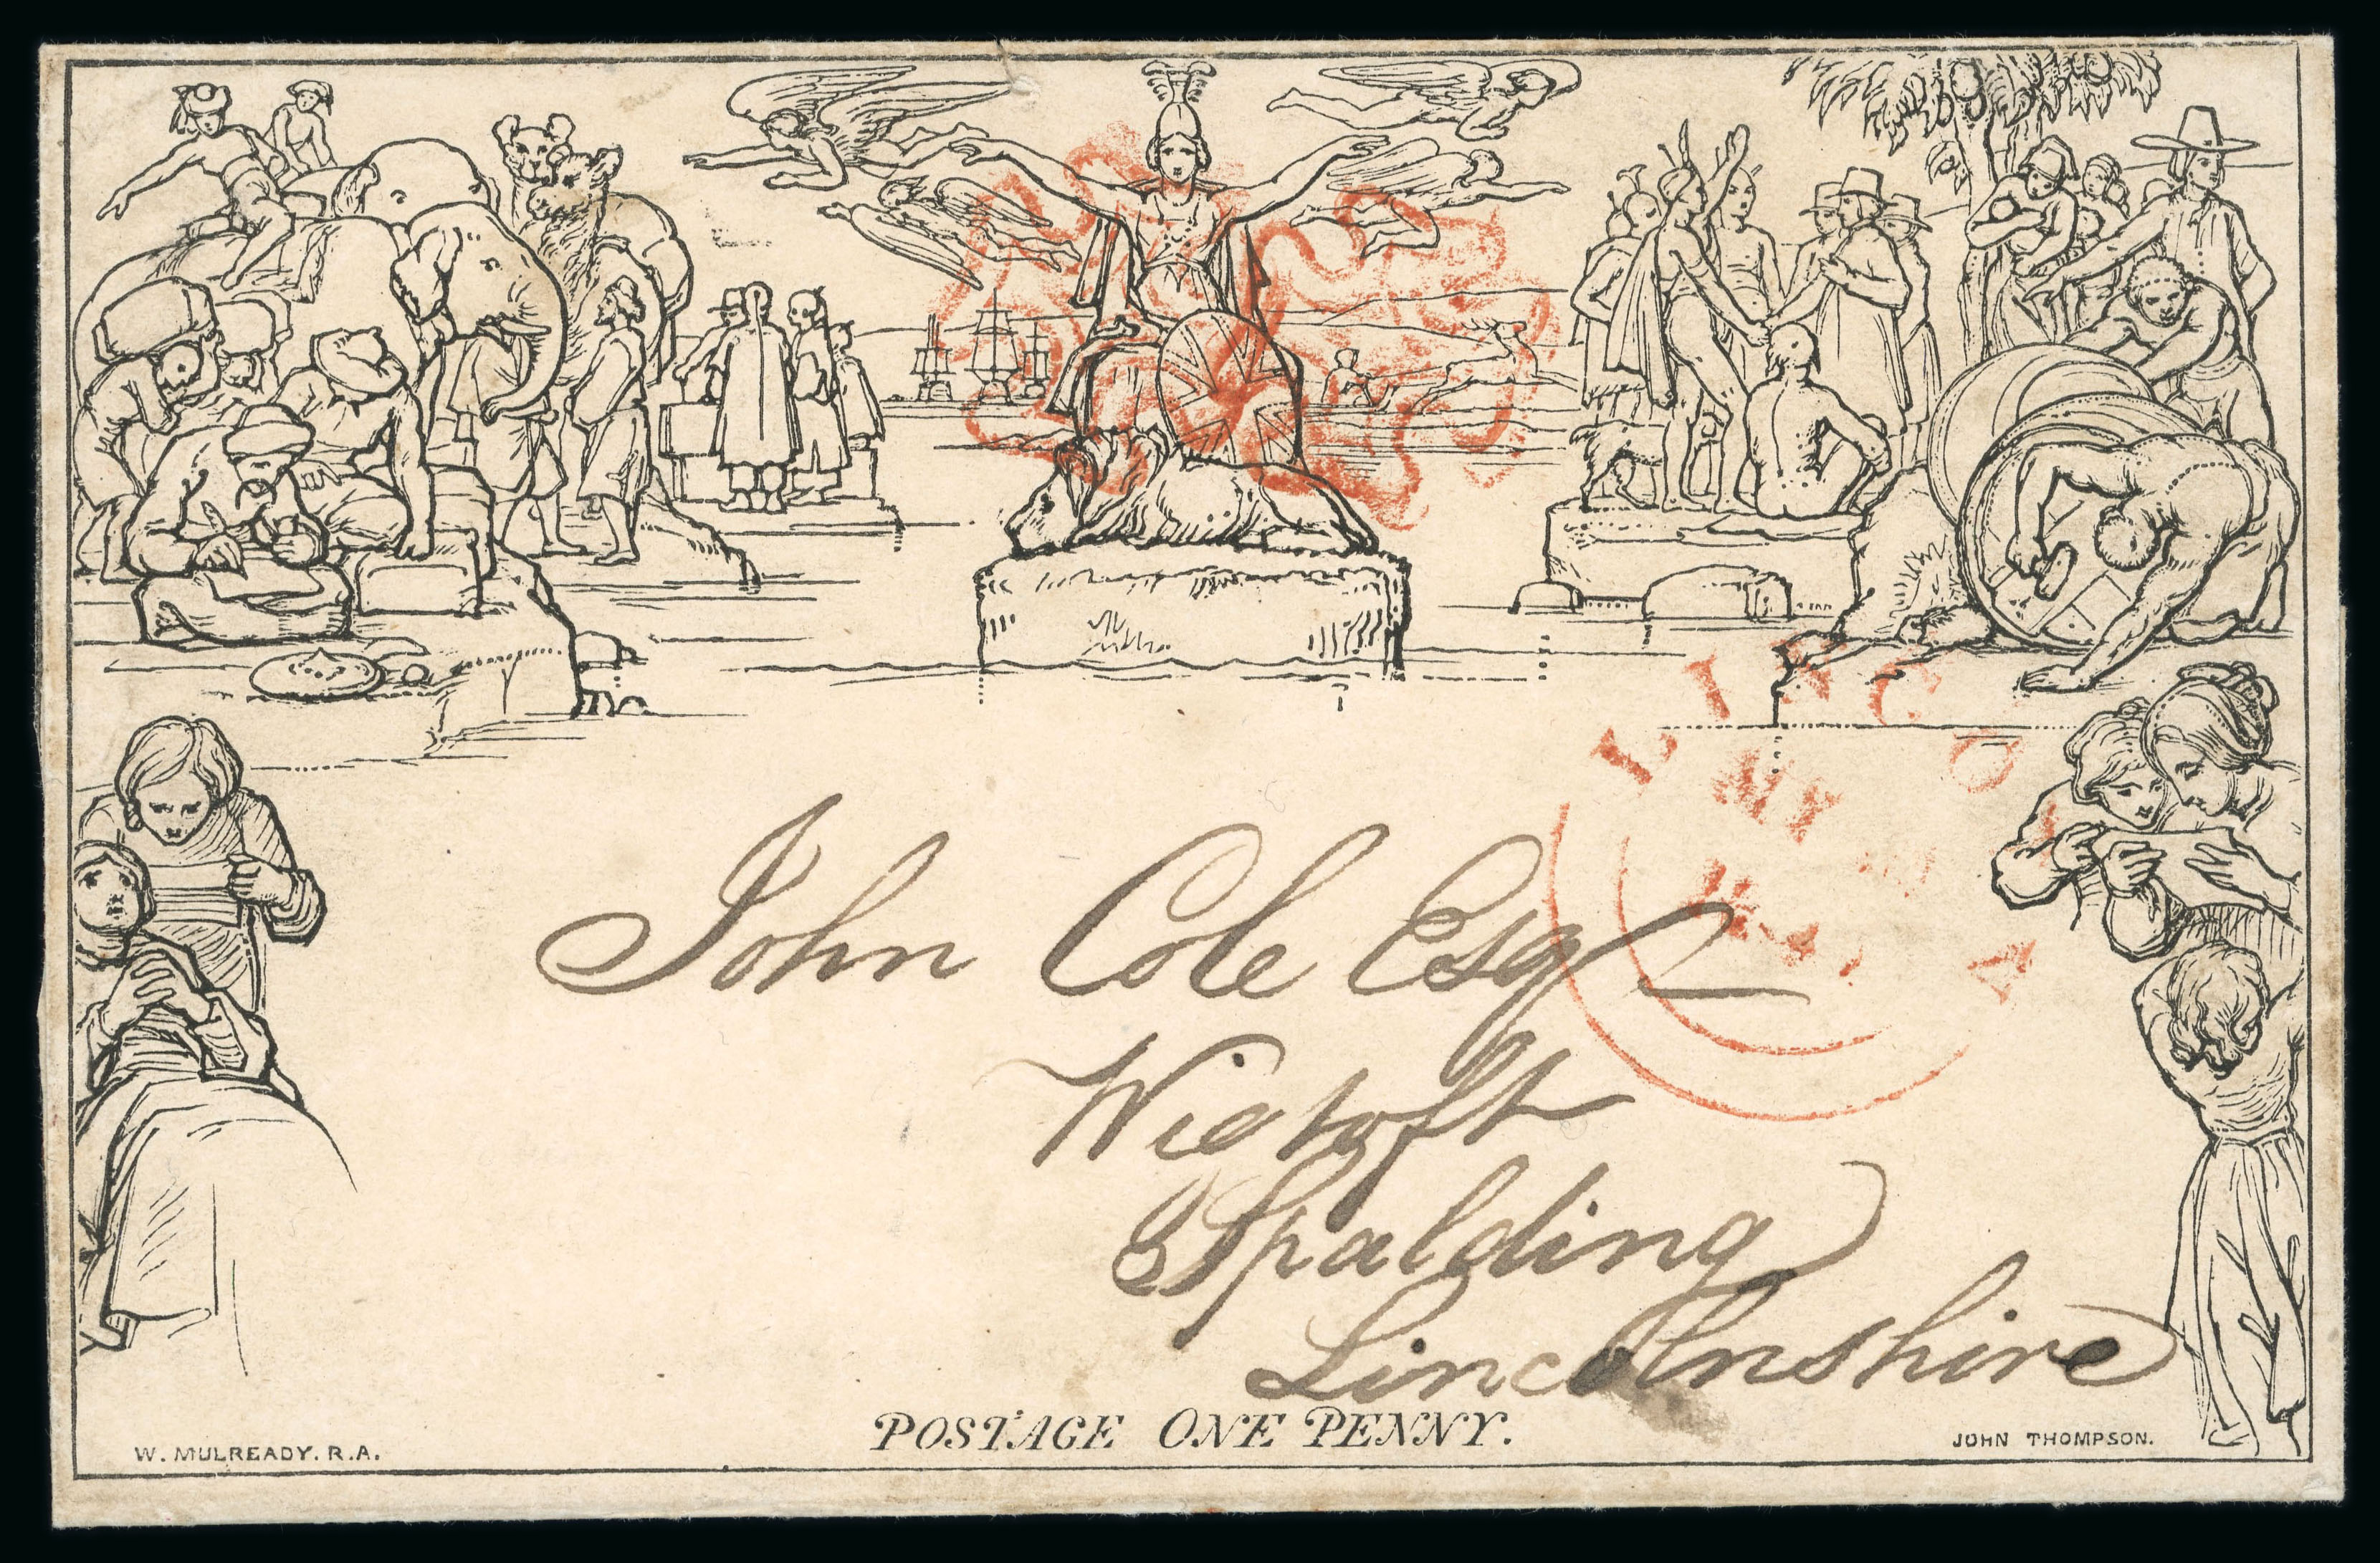 LINCO
MY
A
John Cole Esq
Wigtoft
Spalding
Lincolnshire
POSTAGE ONE PENNY.
W. MULREADY. R.A.
JOHN THOMPSON.